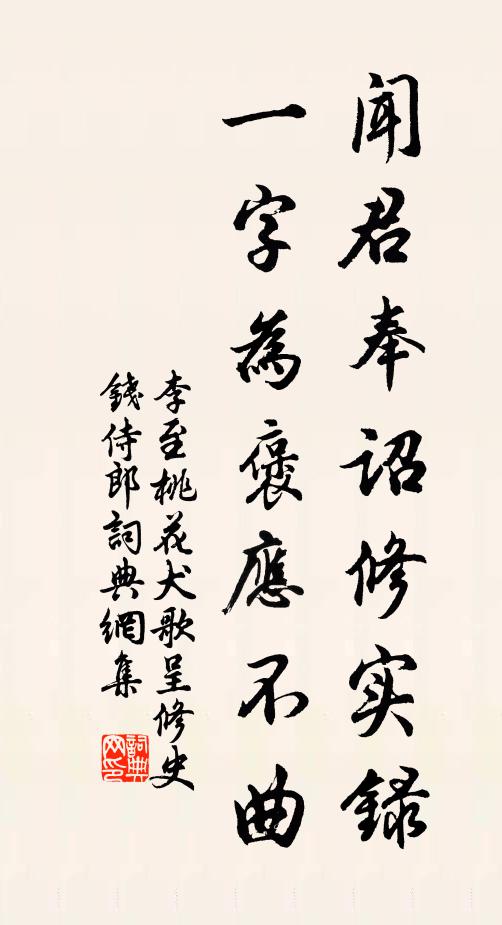 闻君奉诏修实録
一字為褒應不曲
李至桃花犬歌呈修史
錢侍郎詞典網集
詞典
网印